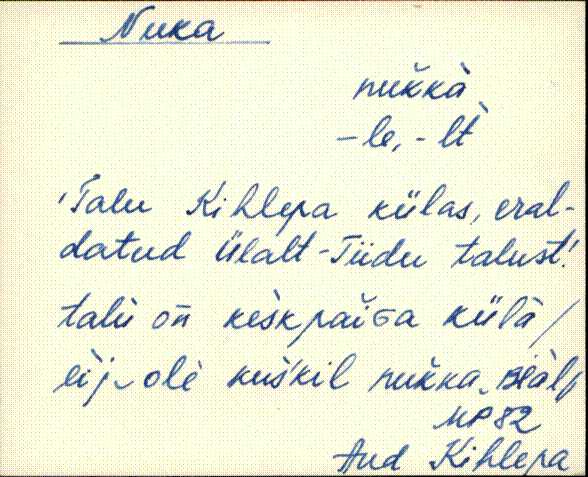 Nuka
nŭkkà
-le, -lt̀
'Talu Kihlepa külas, eral-
datud Ülalt-Tiidu talust!
talù on keskpaiGa külà /
èij ole kuskil nukka
MP82
Aud Kihlepa